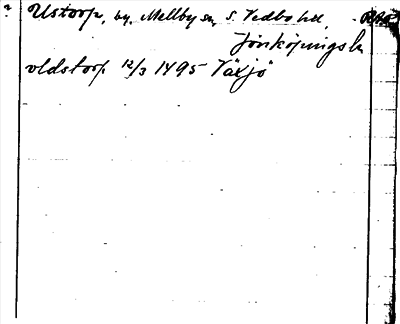 Ustorp, by, Mellby sn, S. Vedbo hd,
Jönköpings l.
vldstorp 12/3 1495 Växjö